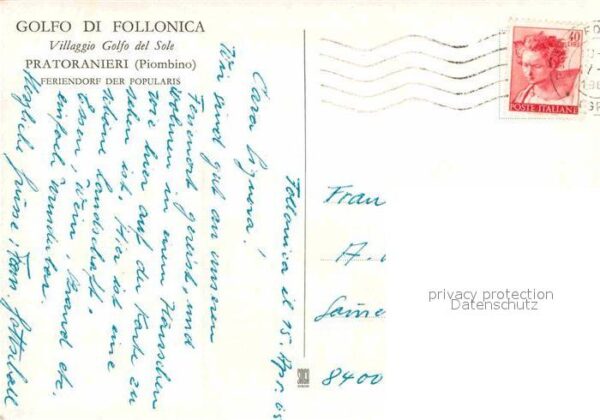 GOLFO DI FOLLONICA
Villaggio Golfo del Sole
PRATORANIERI (Piombino)
FERIENDORF DER POPULARIS
Follonica il 15. Apr. 65
Cara Signora!
Wir sind gut an unseren
Ferienort gereist, und
wohnen in einem Häuschen
wie hier auf der Karte zu
sehen ist. Hier ist eine
schöne Landschaft,
Essen, Wein, Strand etc.
einfach wunderbar.
Herzliche Grüsse, Fam.
40
POSTE ITALIANE
Frau
A.
8400
privacy protection
Datenschutz